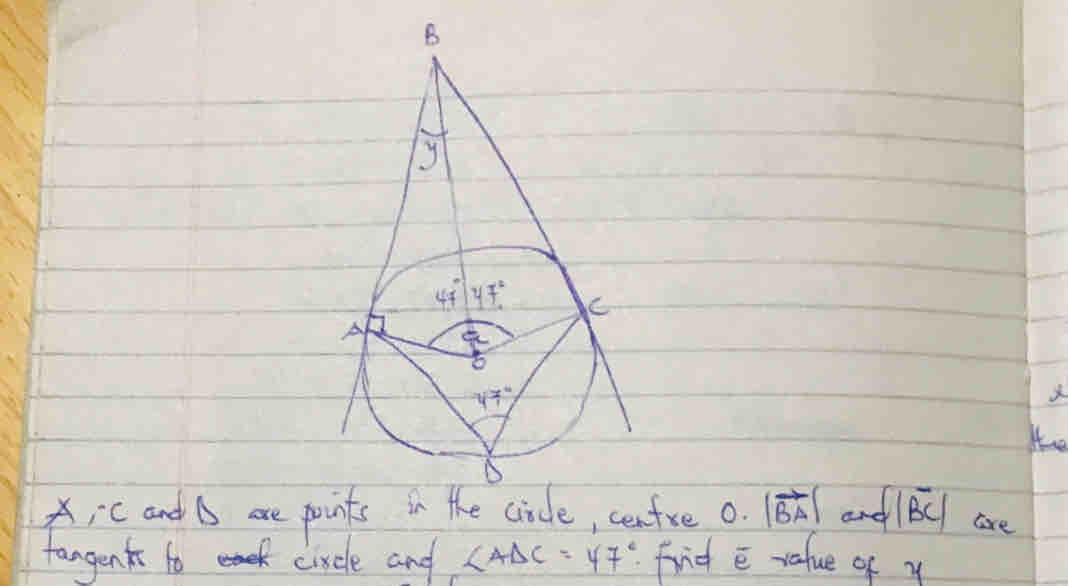 B
y
47° 47°
A
C
O
47°
D
A, C and D are points in the circle, centre O. |BA| and |BC| are
tangents to circle and ∠ADC = 47°. find ē value of y